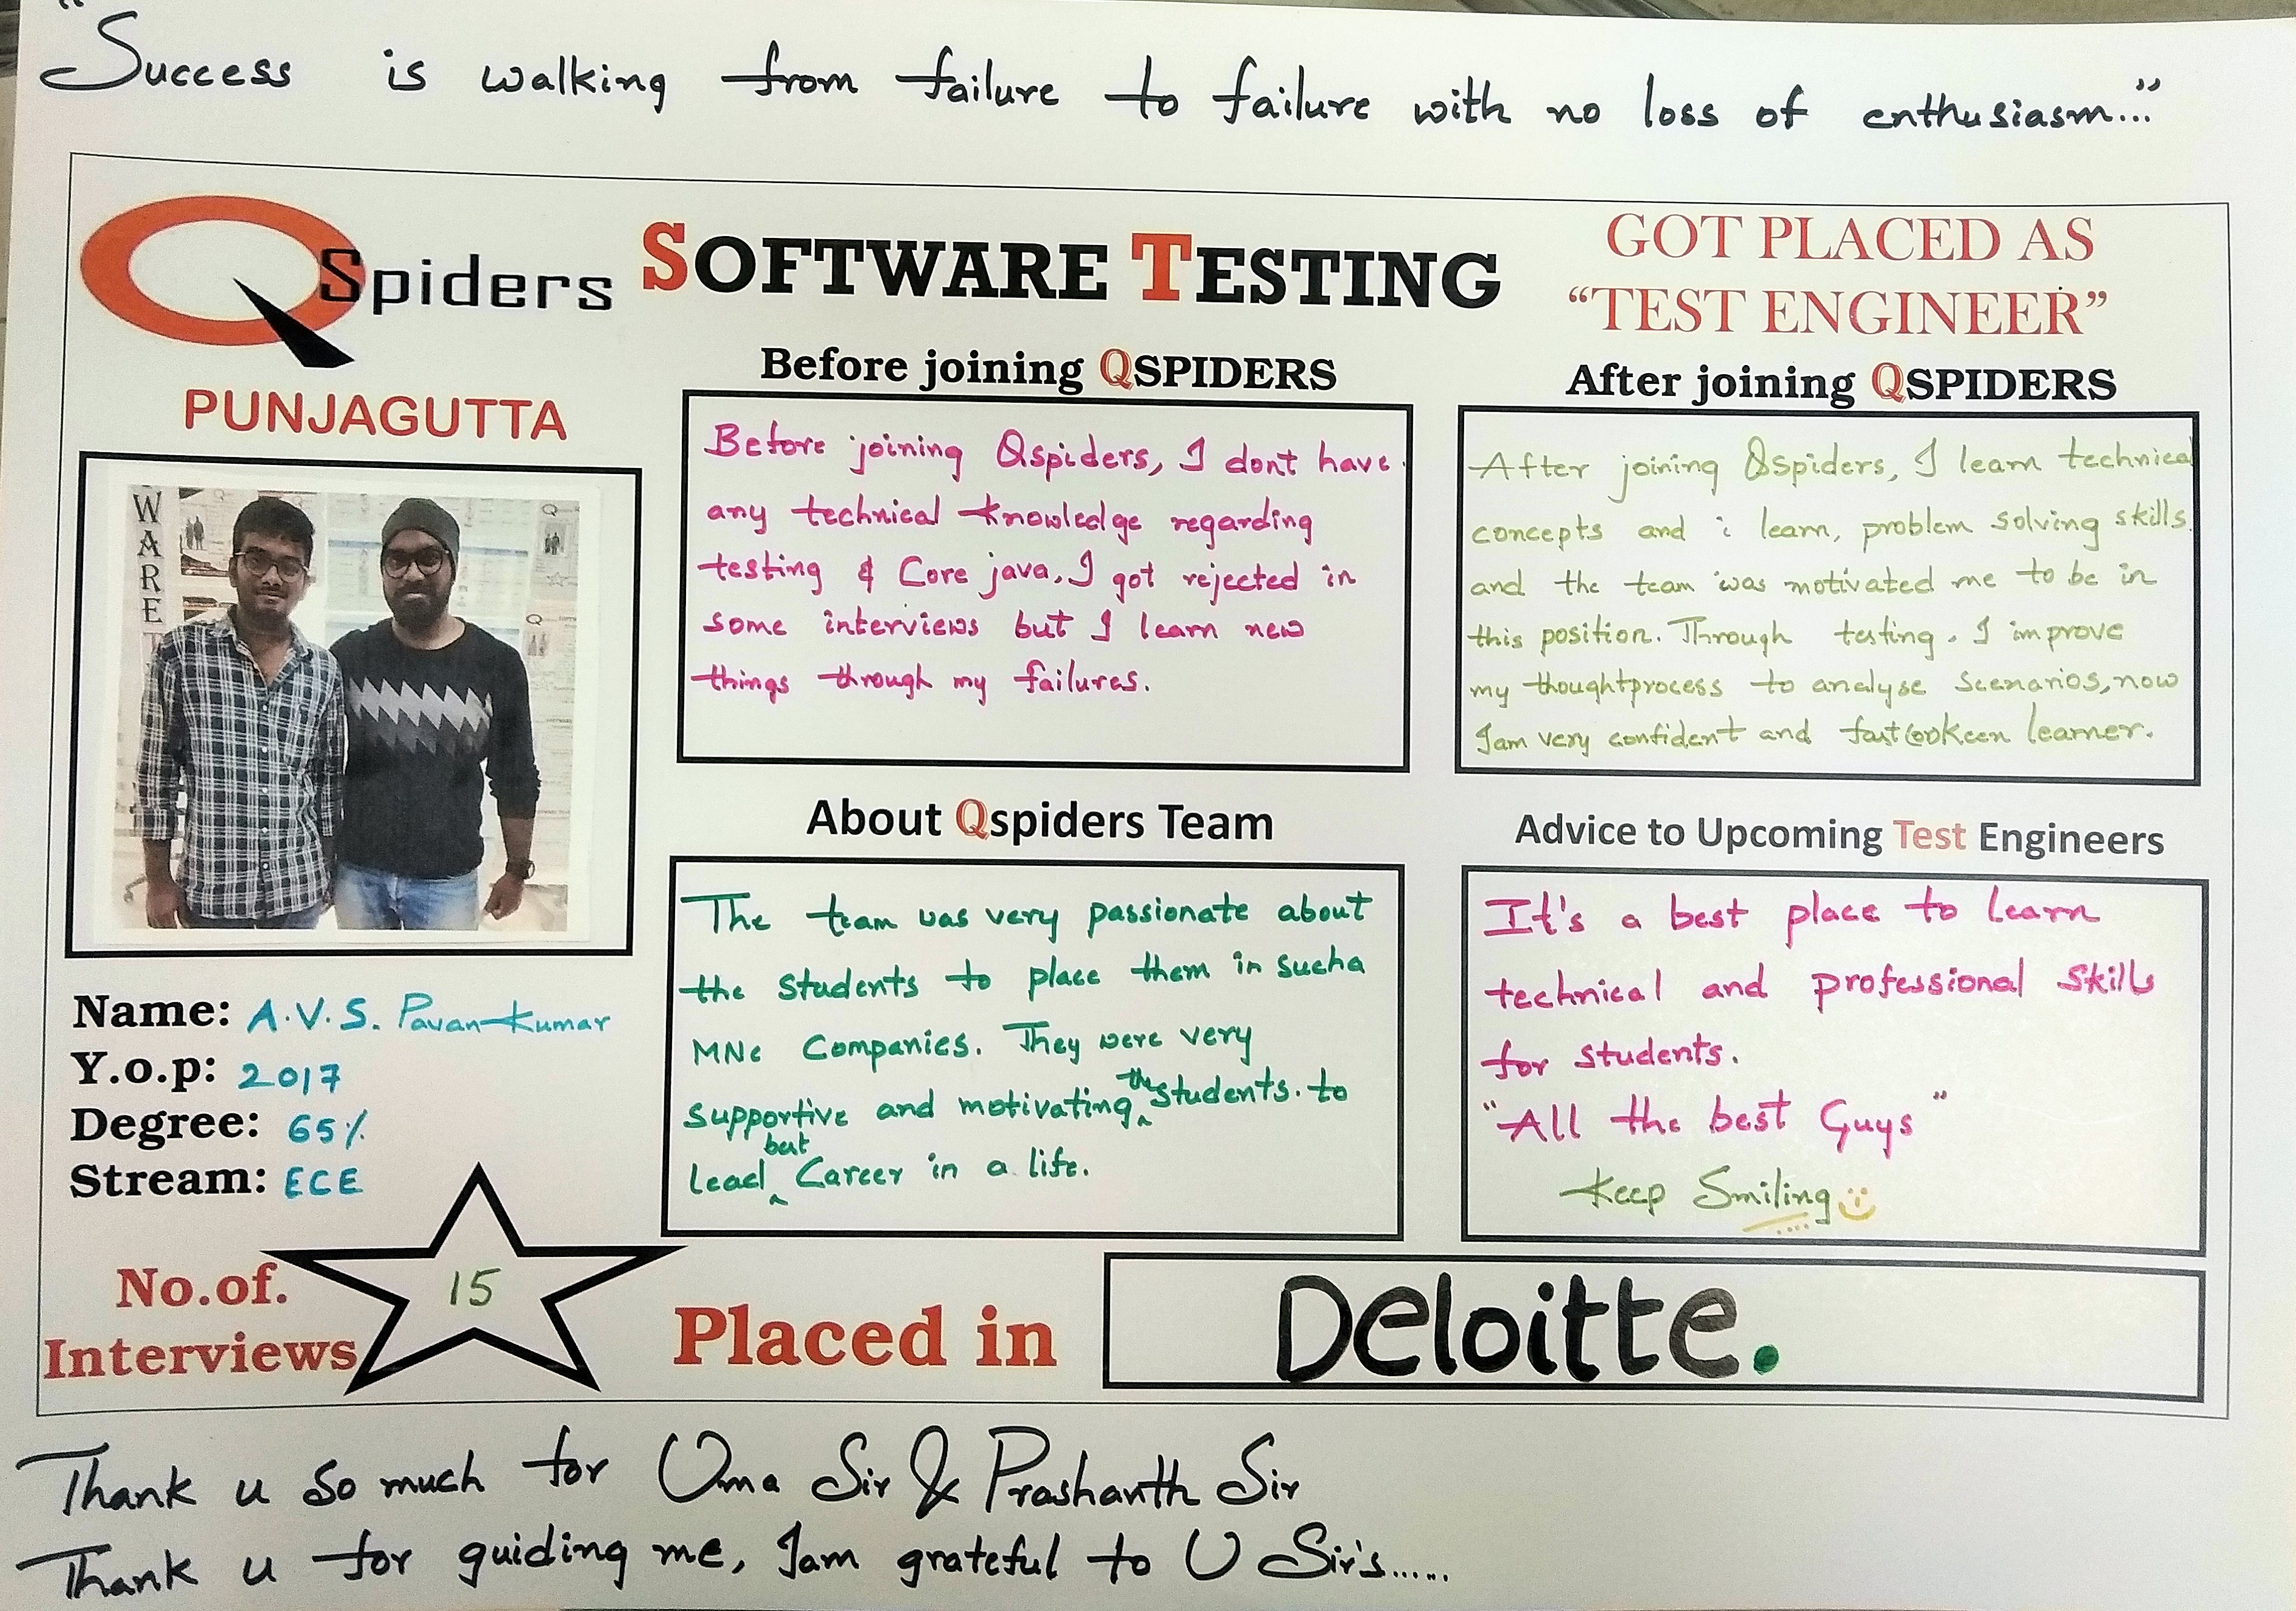 "Success is walking from failure to failure with no loss of enthusiasm..."
QSpiders
SOFTWARE TESTING
GOT PLACED AS
"TEST ENGINEER"
PUNJAGUTTA
WARE
Before joining QSPIDERS
Before joining Qspiders, I dont have
any technical knowledge regarding
testing & Core java, I got rejected in
some interviews but I learn new
things through my failures.
After joining QSPIDERS
After joining Qspiders, I learn technical
concepts and i learn, problem solving skills
and the team was motivated me to be in
this position. Through testing, I improve
my thoughtprocess to analyse scenarios, now
Iam very confident and fast (or) keen learner.
About Qspiders Team
The team was very passionate about
the students to place them in sucha
MNc Companies. They were very
supportive and motivating the students. to
Lead best Career in a life.
Advice to Upcoming Test Engineers
It's a best place to learn
technical and professional skills
for students.
"All the best Guys"
Keep Smiling
Name: A.V.S. Pavan Kumar
Y.o.p: 2017
Degree: 65%
Stream: ECE
No.of.
Interviews
15
Placed in
Deloitte.
Thank u so much for Uma Sir & Prashanth Sir
Thank u for guiding me, Iam grateful to U Sir's.....